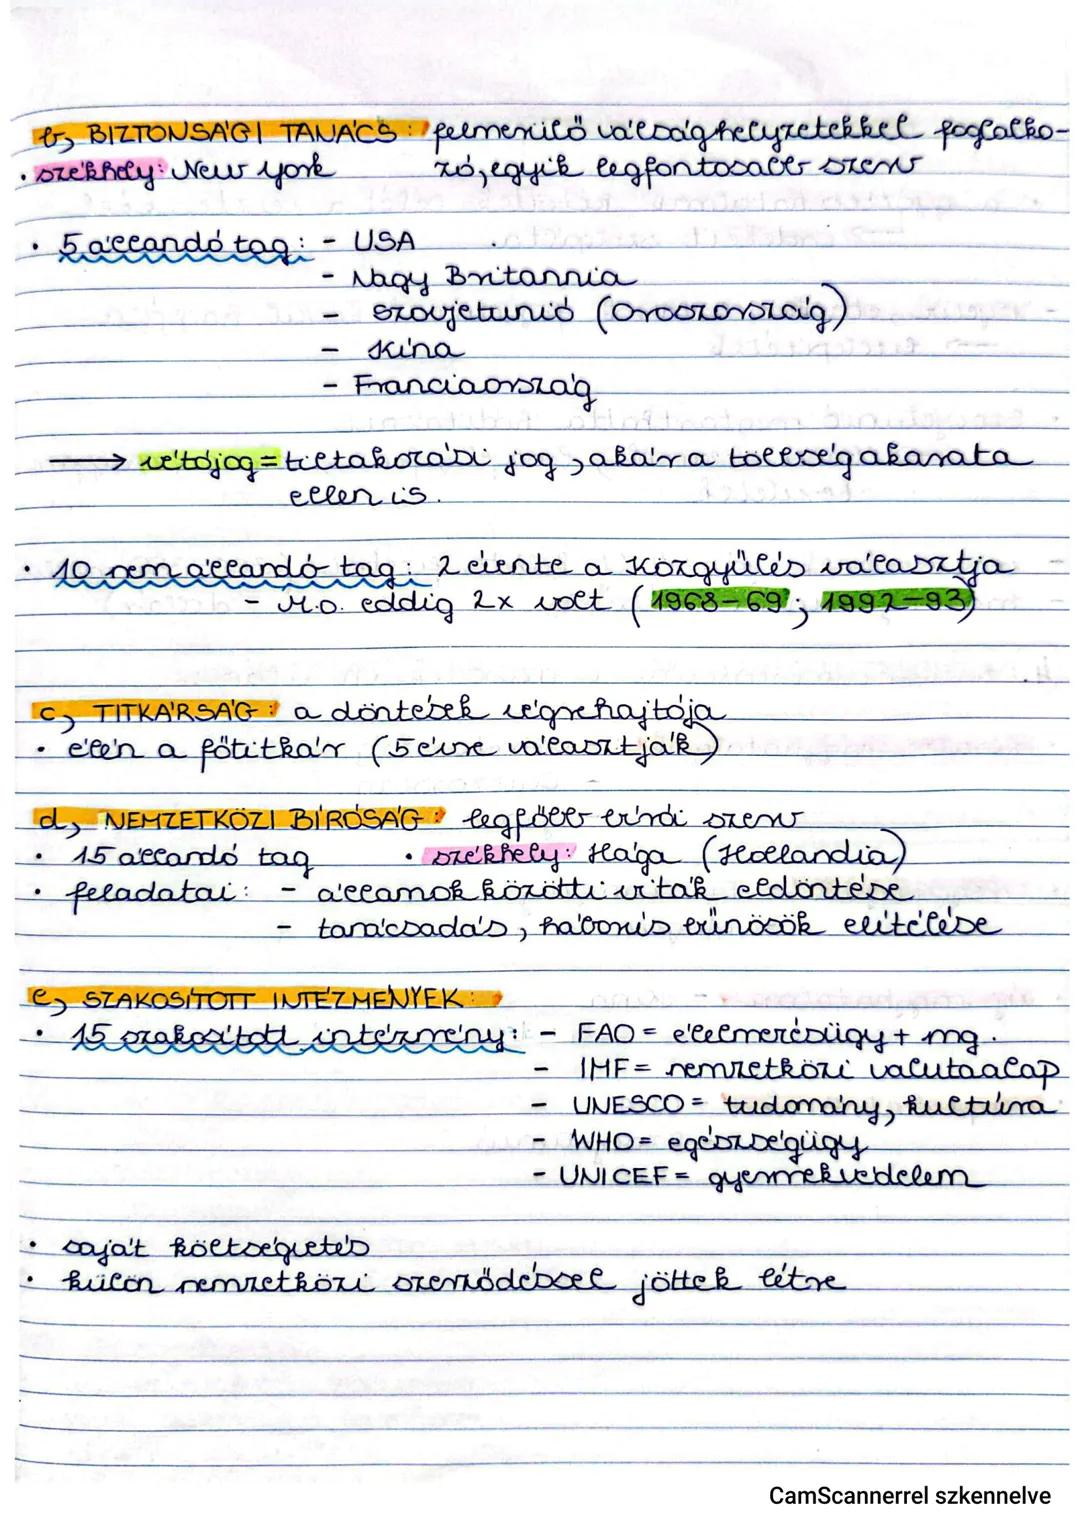 b, BIZTONSÁGI TANÁCS: felmerülő válsághelyzetekkel foglalko-
• székhely: New York zó, egyik legfontosabb szerv
• 5 állandó tag: - USA
- Nagy Britannia
- Szovjetunió (Oroszország)
- Kína
- Franciaország
→ vétójog = tiltakozási jog, akár a többség akarata
ellen is.
• 10 nem állandó tag: 2 évente a Közgyűlés választja
- M.o. eddig 2x volt (1968-69; 1992-93)
c, TITKÁRSÁG: a döntések végrehajtója
• élén a főtitkár (5 évre választják)
d, NEMZETKÖZI BÍRÓSÁG: legfőbb bírói szerv
• 15 állandó tag • székhely: Hága (Hollandia)
• feladatai: - államok közötti viták eldöntése
- tanácsadás, háborús bűnösök elítélése
e, SZAKOSÍTOTT INTÉZMÉNYEK:
• 15 szakosított intézmény: - FAO = élelmezésügy + mg.
- IMF = nemzetközi valutaalap
- UNESCO = tudomány, kultúra
- WHO = egészségügy
- UNICEF = gyermekvédelem
• saját költségvetés
• külön nemzetközi szerződéssel jöttek létre
CamScannerrel szkennelve